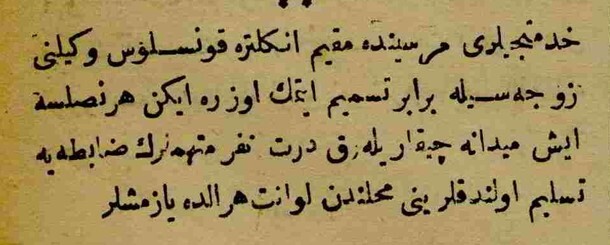 خدمتجیلری مرسینده مقیم انکلتره قونسلوس وکیلنی
زوجه‌سیله برابر تسمیم ایتمك اوزره ایکن هرنصلسه
ایش میدانه چیقاریله‌رق درت نفر متهمه‌نك ضابطه‌یه
تسلیم اولندقلرینی محلندن لوانت هرالده یازمشلر